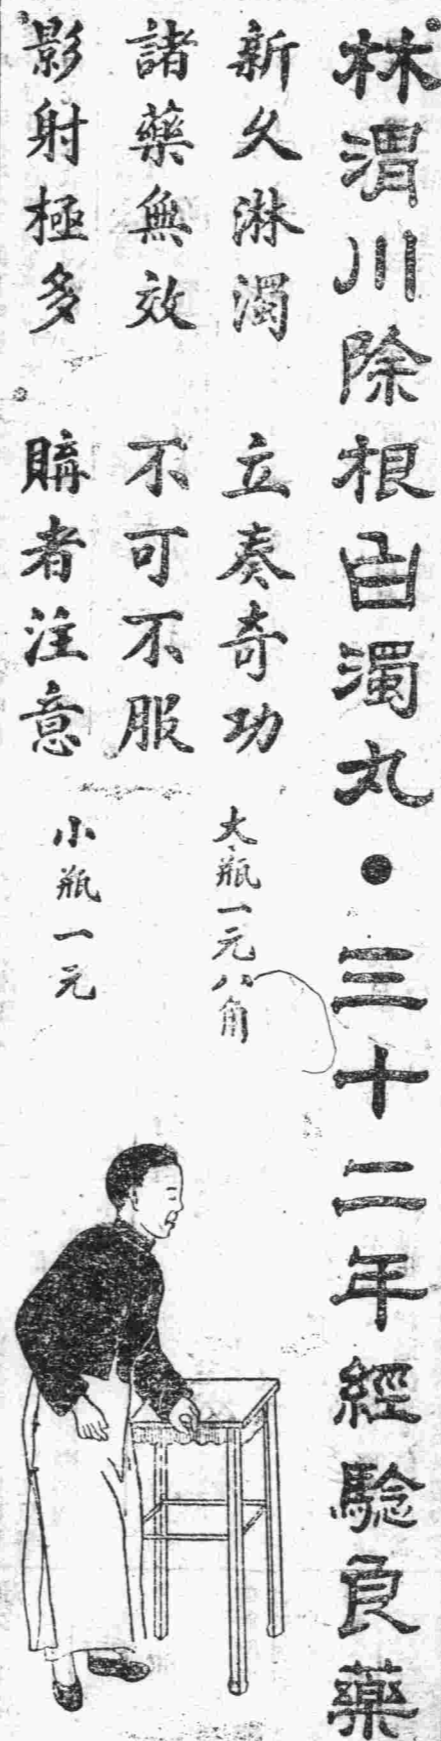 林渭川除根白濁丸●三十二年經騐良藥
新久淋濁 立奏奇功
諸藥無效 不可不服
影射極多 購者注意
大瓶一元八角
小瓶一元